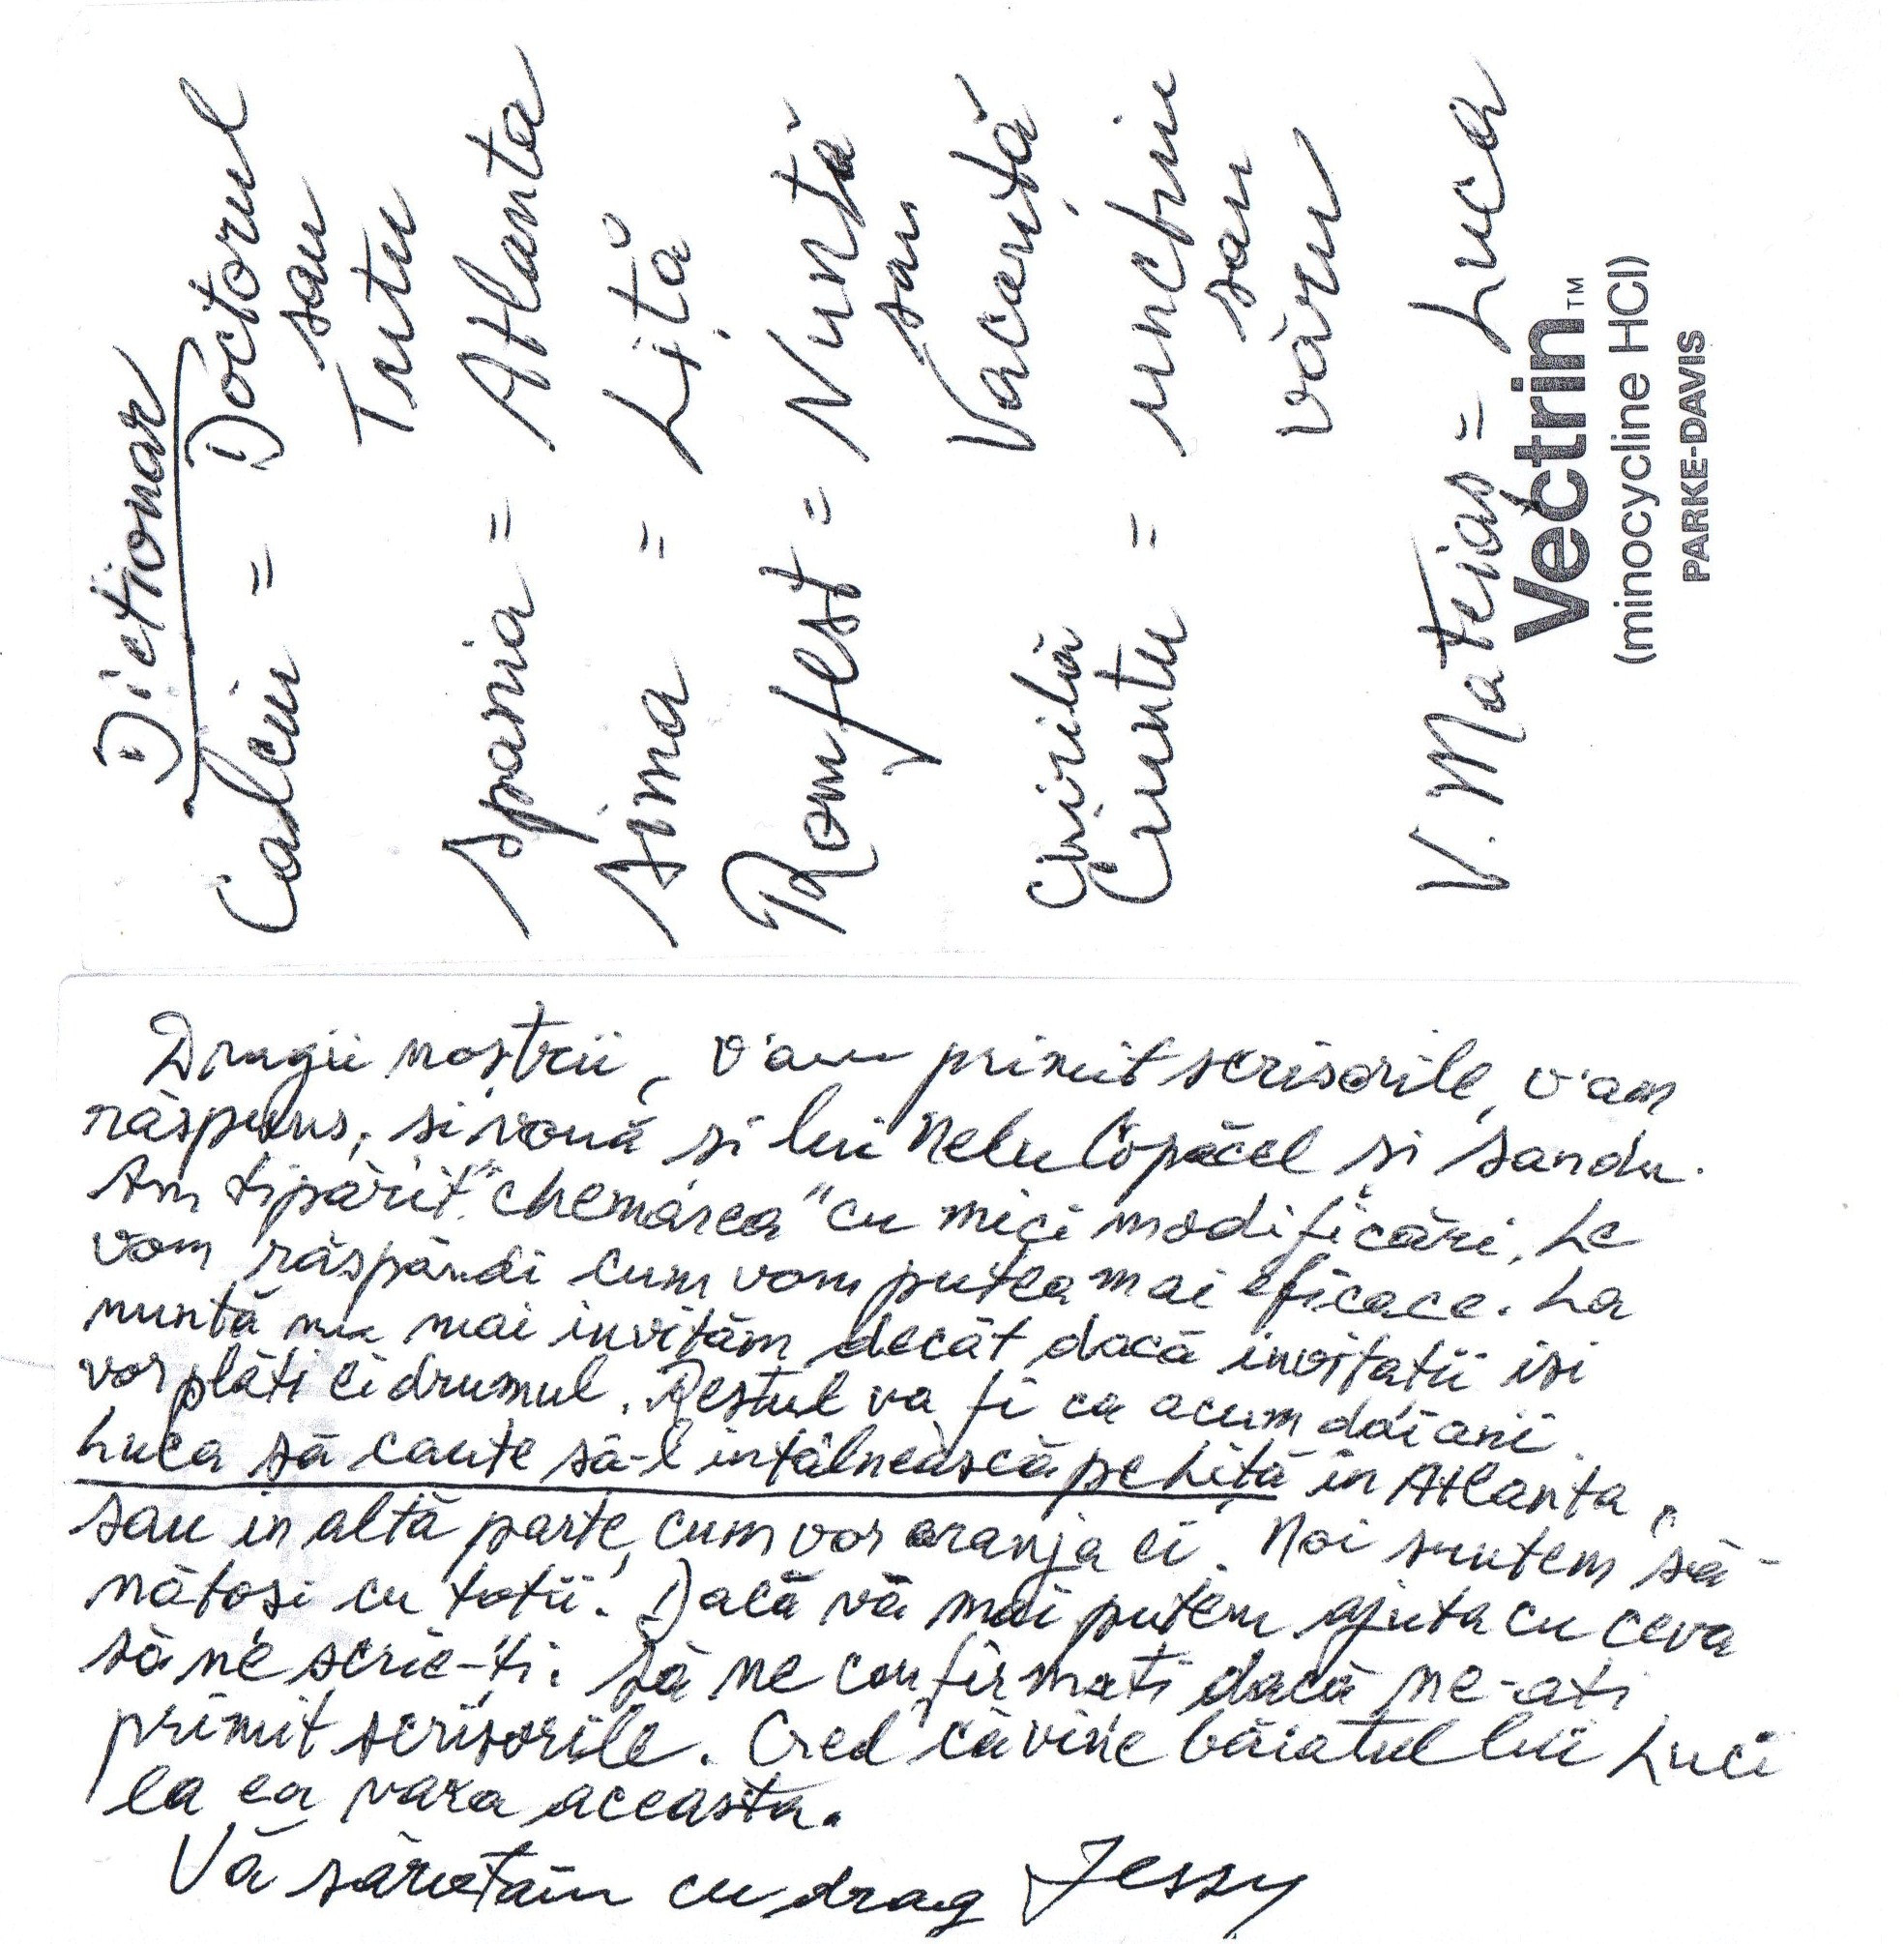 Dictionar
Calciu = Doctorul
sau
Tutu
Spania = Atlanta
Sima = Liță
Romfest = Nuntă
sau
Vacanță
Chirilă
Ciuntu = unchiu
sau
văru
V. Mateias = Luca
Vectrin™
(minocycline HCl)
PARKE-DAVIS
Dragii nostrii, v'am primit scrisorile, v'am
răspuns, si vouă si lui Nelu Copăcel si Sandu.
Am tipărit "chemarea" cu mici modificări. Le
vom răspândi cum vom putea mai eficace. La
nuntă nu mai invităm decât dacă invitatii isi
vor plăti ei drumul. Restul va fi ca acum doi ani.
Luca să caute să-l intâlnească pe Liță in Atlanta,
sau in altă parte, cum vor aranja ei. Noi suntem să-
nătoși cu totii. Dacă vă mai putem ajuta cu ceva
să ne scrie-ți. Să ne confirmati dacă ne-ati
primit scrisorile. Cred că vine băiatul lui Luci
la ea vara aceasta.
Vă sărutăm cu drag Jessy